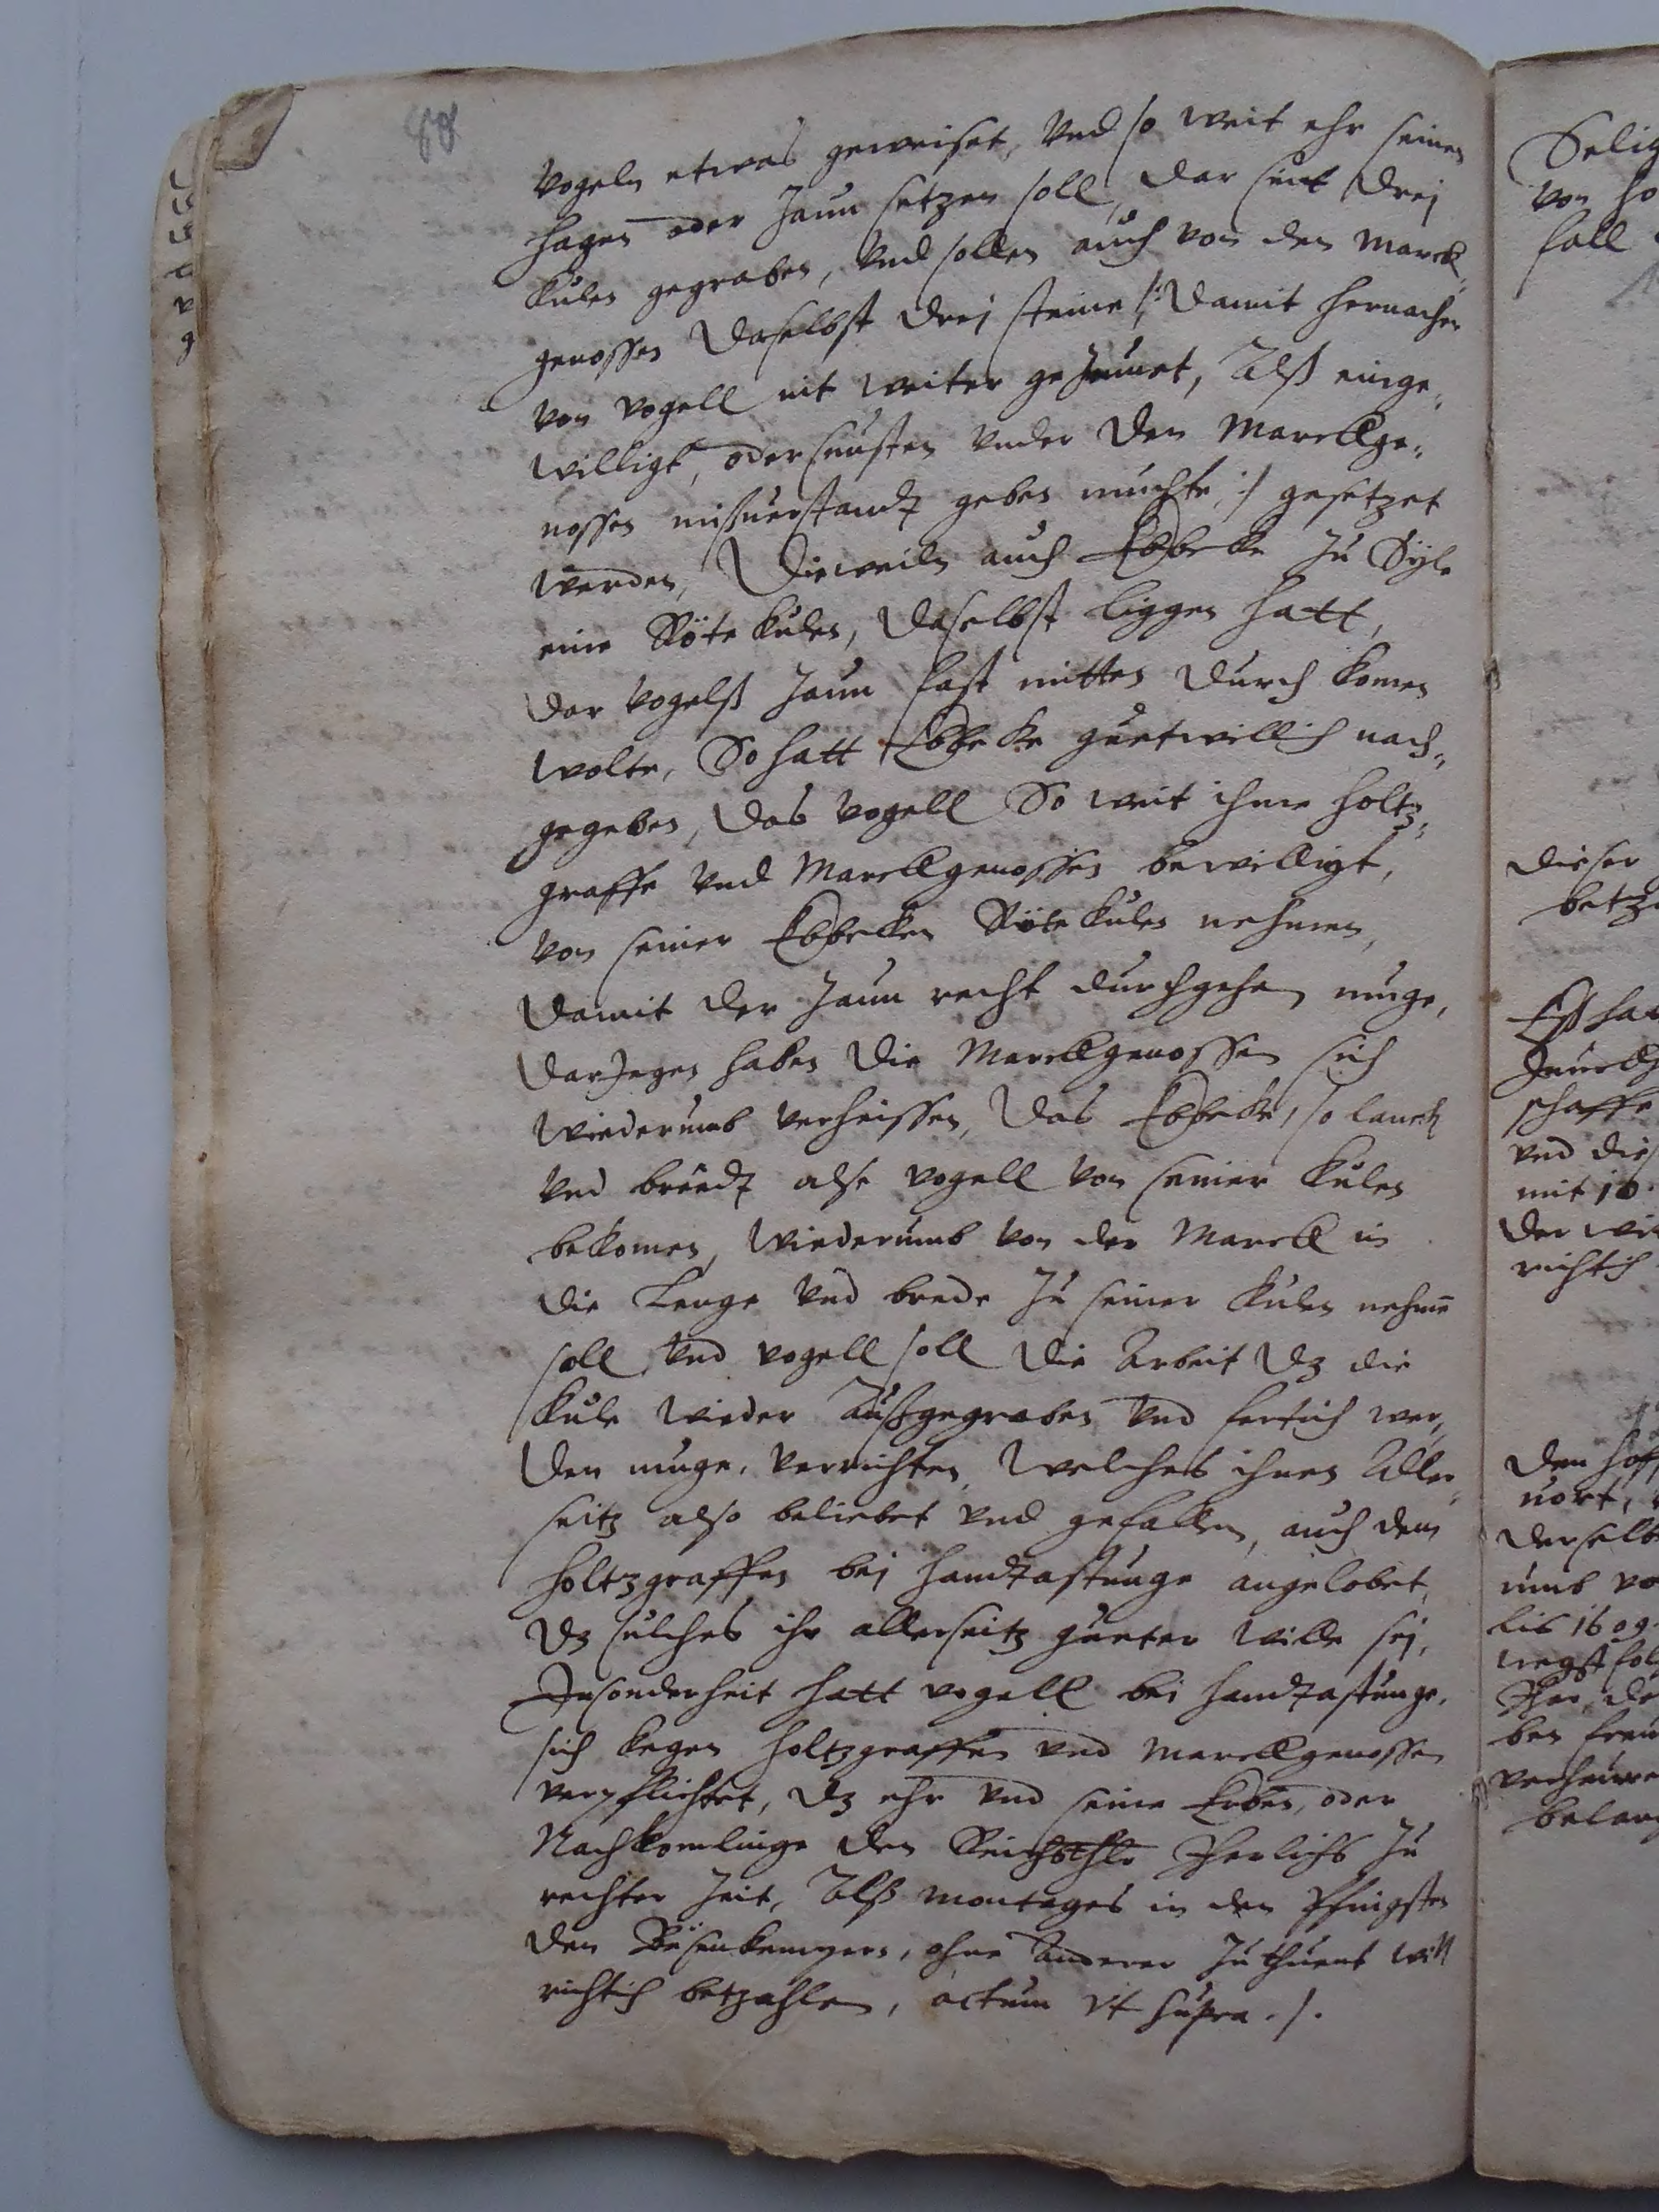 88
vogeln etwas geweiset, vnd so weit ehr seinen
hagen oder zaun setzen soll, dar sint drej
kulen gegraben, vnd sollen auch von den Marck„
genossen daselbst drej steine /: damit hernacher
von vogell nit weiter gezeunet, Alß einge„
willigt, oder sunsten vnder den Marckge„
nossen mißuerstandt geben muchte :/ gesetzet
werden, Dieweiln auch Ebbecke zu Syle
eine Röte kulen, daselbst liggen hatt,
dar vogelß zaun fast mitten durch komen
wolte, So hatt Ebbeke guetwillich nach„
gegeben, das vogell So weit ihme holtz„
graffe vnd Marckgenossen bewilligt,
von seiner Ebbecken Röte kulen nehmen,
damit der zaun recht durchgehen muge,
darJegen haben die Marckgenossen sich
wiederumb verheissen, das Ebbeke, so lanck
vnd breedt alse vogell von seiner kulen
bekomen, wiederumb von der Marck in
die Lenge vnd brede zu seiner kulen nehmen
soll, vnd vogell soll die Arbeit dz die
kule wieder Außgegraben vnd fertich wer„
den muge, verrichten, welches ihnen Aller„
seitz also beliebet vnd gefallen, auch dem
holtzgraffen bej handtastunge angelobet,
dz sulches ihr allerseitz gueter wille sej,
Insonderheit hatt vogell bei handtastunge,
sich kegen holtzgraffen vnd Marckgenossen
verpflichtet, dz ehr vnd seine Erben, oder
Nachkomlinge den Reichsthlr Jherlichs zu
rechter zeit, Alß montages in den Pfingsten
den Bisenkempern, ohne Anderer zuthuent will
richtich betzahlen, actum vt supra ./.
Selig
von ho
soll
dieser
betza
Eß hat
schaffe
vnd dies
mit 10
der wie
richtich
den hoff
uort,
derselb
umb vo
lis 1609
ben
belang